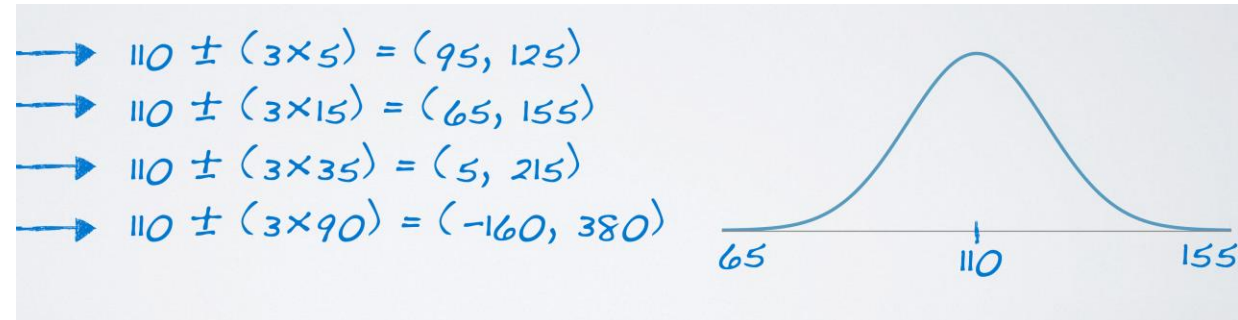 110 ± (3×5) = (95, 125)
110 ± (3×15) = (65, 155)
110 ± (3×35) = (5, 215)
110 ± (3×90) = (-160, 380)
65 110 155